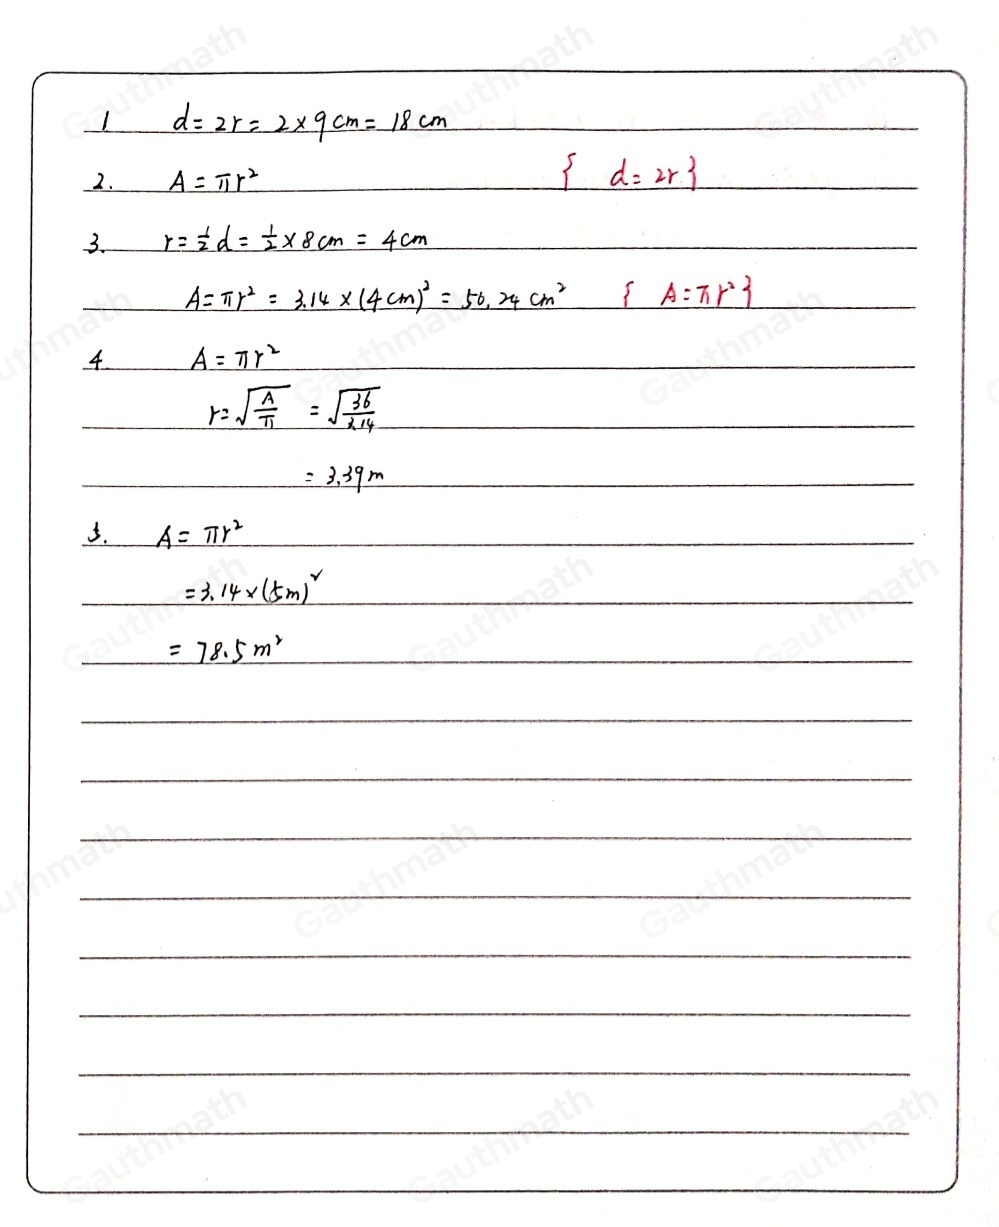 1 d = 2r = 2 × 9 cm = 18 cm
2. A = πr² { d = 2r }
3. r = ½ d = ½ × 8 cm = 4 cm
A = πr² = 3.14 × (4 cm)² = 50.24 cm² { A = πr² }
4. A = πr²
r = √(A/π) = √(36/3.14)
= 3.39 m
5. A = πr²
= 3.14 × (5m)²
= 78.5 m²